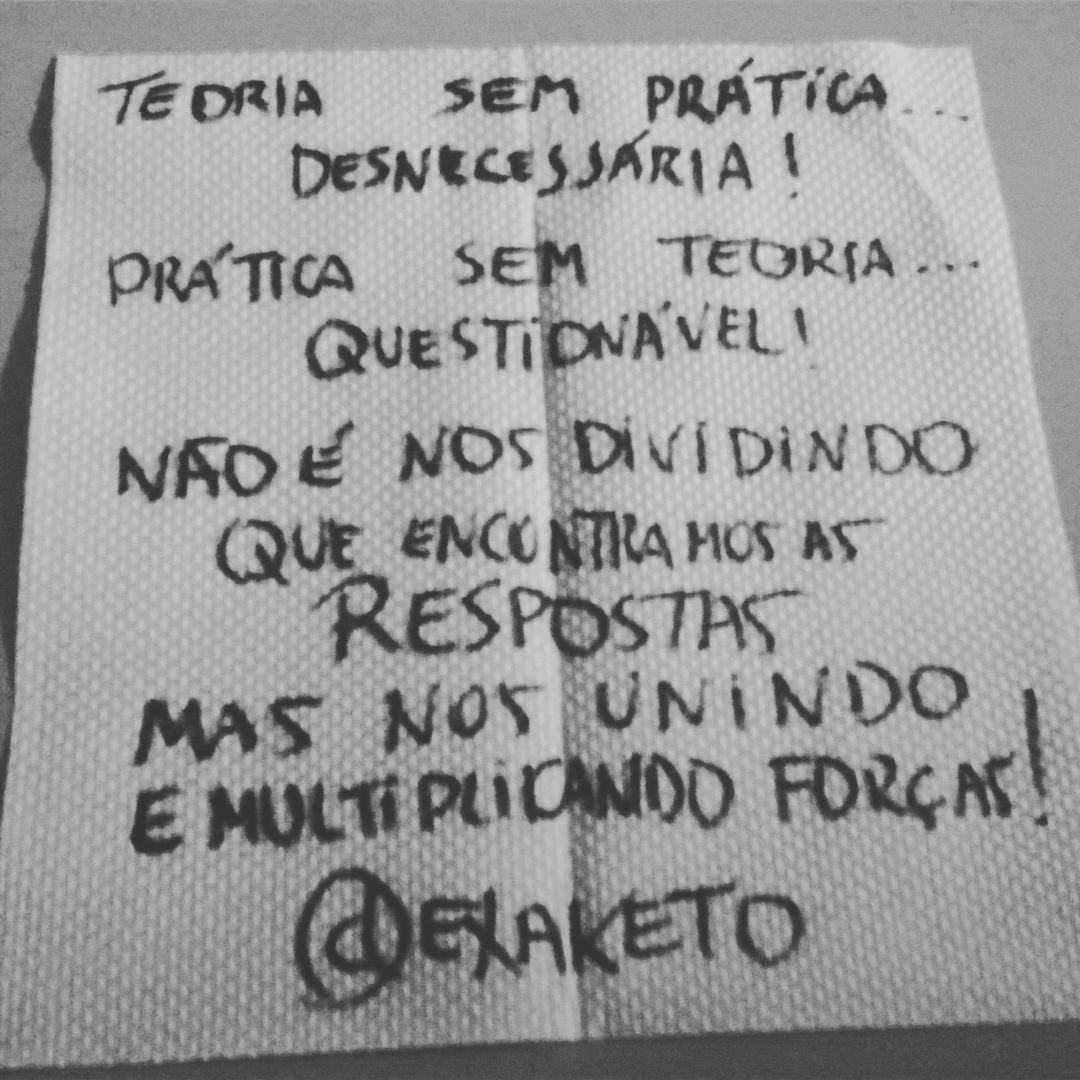 TEORIA SEM PRÁTICA...
DESNECESSÁRIA!
PRÁTICA SEM TEORIA...
QUESTIONÁVEL!
NÃO É NOS DIVIDINDO
QUE ENCONTRAMOS AS
RESPOSTAS
MAS NOS UNINDO
E MULTIPLICANDO FORÇAS!
@DEXAKETO